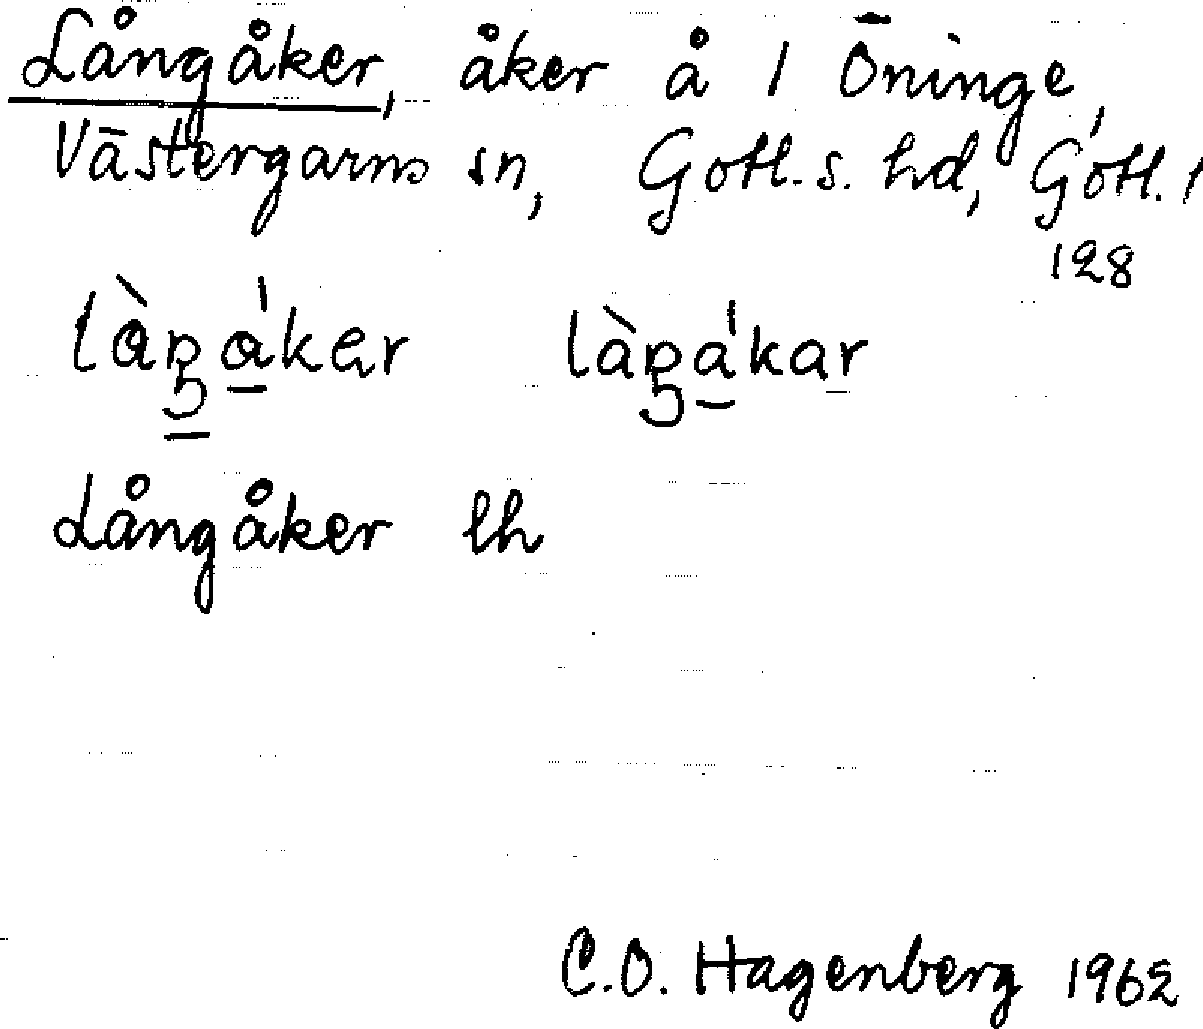 Långåker, åker å 1 Öninge,
Västergarns sn, Gotl. s. hd, Gotl. l
128
Långåker lh
C.O. Hagenberg 1962